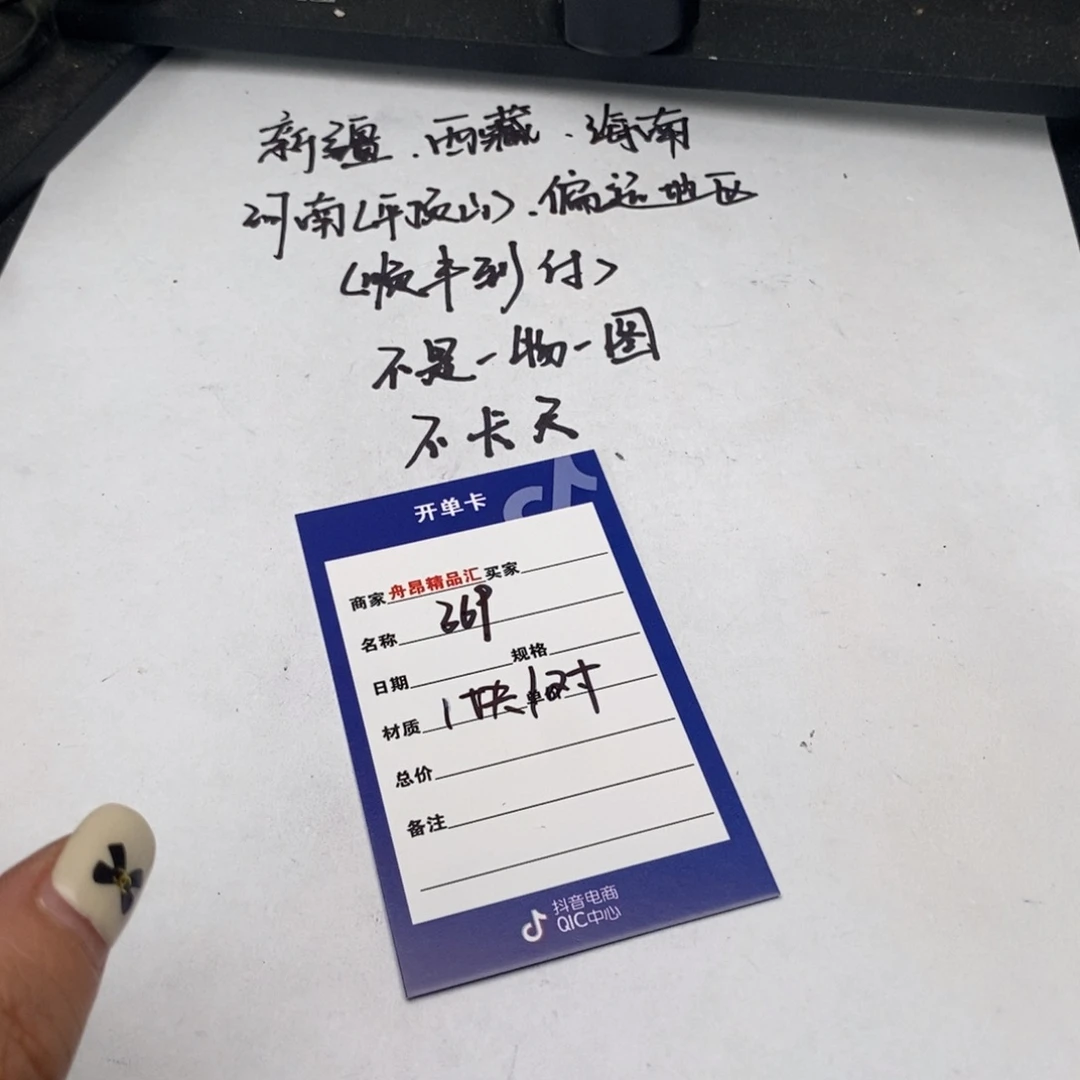 新疆.西藏.海南
河南(平顶山).偏远地区
(顺丰到付)
不是一物一图
不卡天
开单卡
商家 舟昂精品汇 买家
名称 369
日期 规格
材质 1块1对 单价
总价
备注
抖音电商
QIC中心